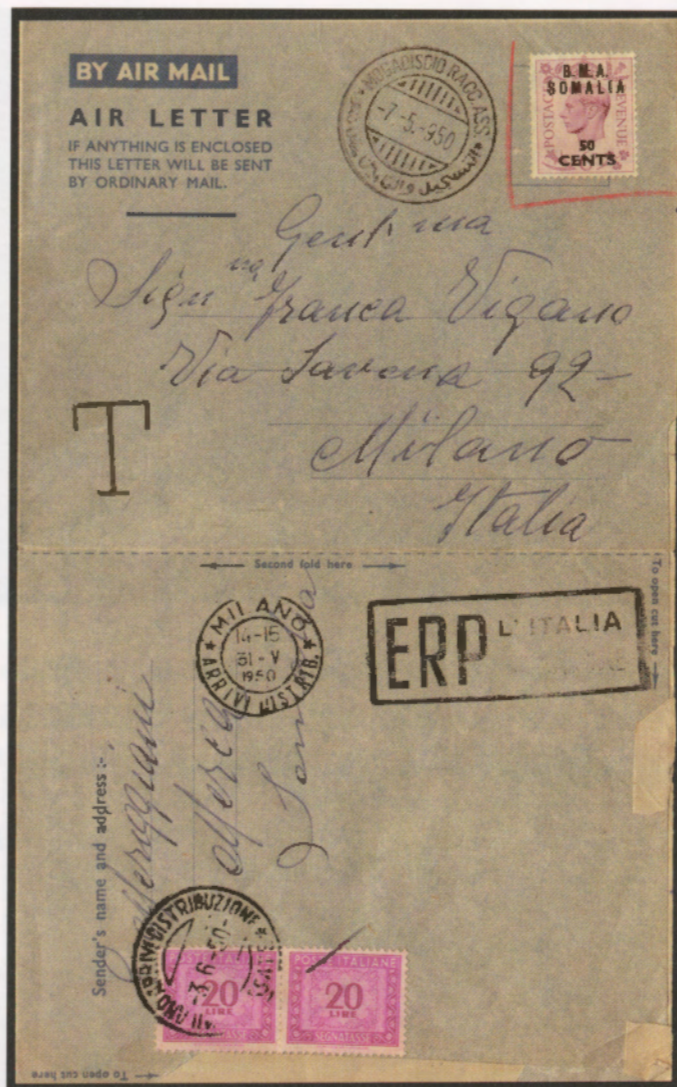 BY AIR MAIL
AIR LETTER
IF ANYTHING IS ENCLOSED
THIS LETTER WILL BE SENT
BY ORDINARY MAIL.
MOGADISCIO RACC. ASS.
-7.-5.-950
B.M.A.
SOMALIA
POSTAGE REVENUE
50
CENTS
Gent ma
Sign na Franca Vigano
Via Savona 92-
Milano
Italia
T
Second fold here
To open cut here
MILANO
14-15
31-V
1950
ARRIVI DISTRIB.
ERP L'ITALIA
Sender's name and address :-
Merca
DISTRIBUZIONE
-3.6-50
POSTE ITALIANE
20
LIRE
SEGNATASSE
POSTE ITALIANE
20
LIRE
SEGNATASSE
To open cut here